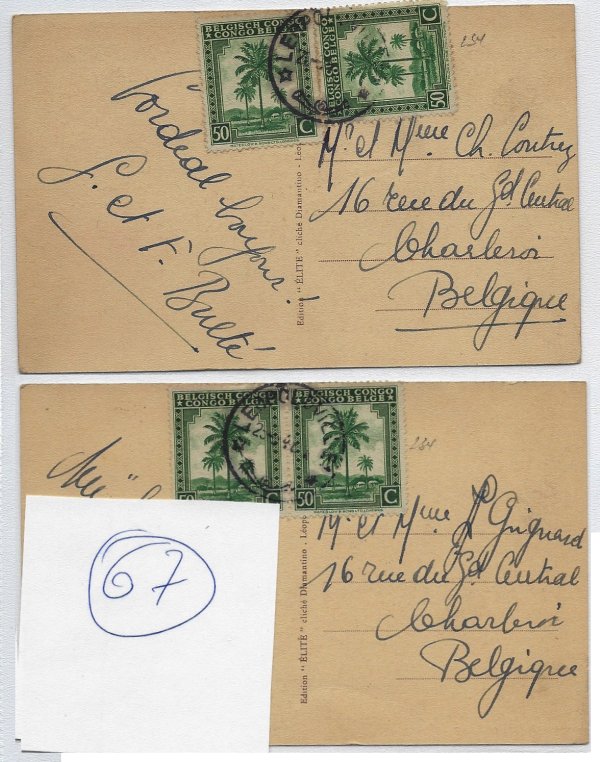 BELGISCH CONGO
CONGO BELGE
50 C
BELGISCH CONGO
CONGO BELGE
50 C
LEOPO
254
Cordial bonjour!
G. et F. Bueté
Edition "ÉLITE" cliché Diamantino - Léop
Mr et Mme Ch. Coutrez
16 rue du Gd Central
Charleroi
Belgique
BELGISCH CONGO
CONGO BELGE
50 C
BELGISCH CONGO
CONGO BELGE
50 C
LEOPO
254
67
Edition "ÉLITE" cliché Diamantino - Léopo
Mr et Mme Grignard
16 rue du Gd Central
Charleroi
Belgique